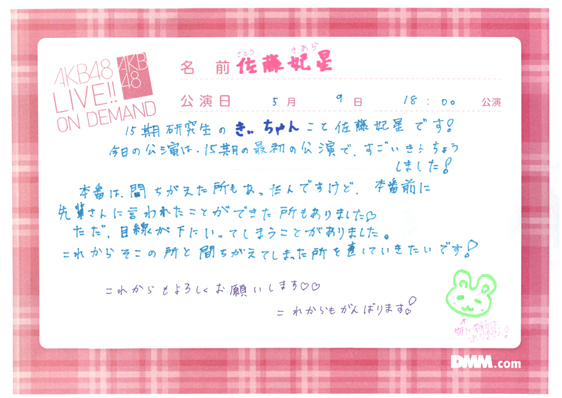 AKB48
LIVE!!
ON DEMAND
AKB
48
名前 佐藤妃星
さとう きあら
公演日 5月 9日 18:00 公演
15期研究生のきぃちゃんこと佐藤妃星です!
今日の公演は、15期の最初の公演で、すごいきんちょう
しました!
本番は、間ちがえた所もあったんですけど、本番前に
先輩さんに言われたことができた所もありました♡
ただ、目線が下にいってしまうことがありました。
これからそこの所と間ちがえてしまった所を直していきたいです!
これからもよろしくお願いします♡♡
これからもがんばります!
DMM.com